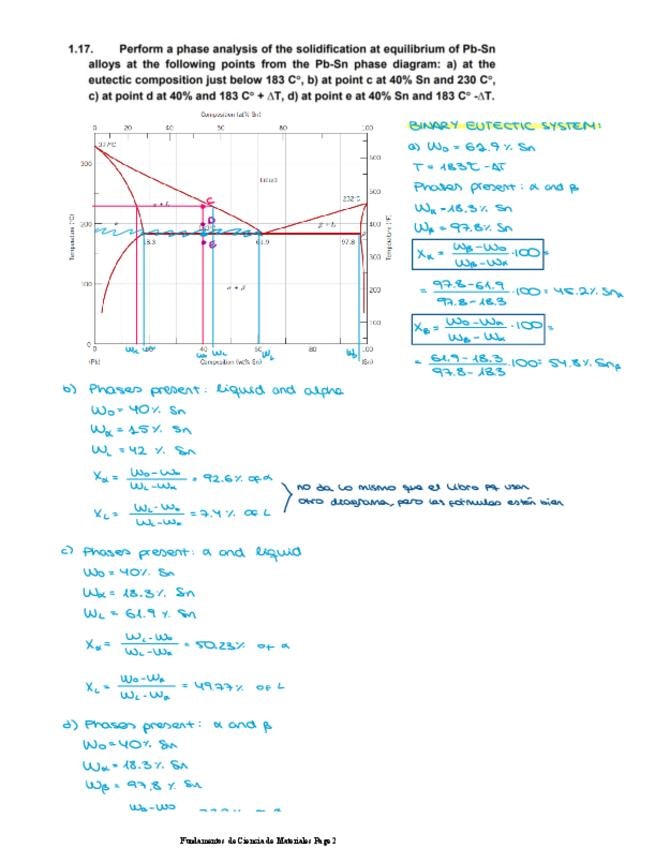 1.17. Perform a phase analysis of the solidification at equilibrium of Pb-Sn
alloys at the following points from the Pb-Sn phase diagram: a) at the
eutectic composition just below 183 Cº, b) at point c at 40% Sn and 230 Cº,
c) at point d at 40% and 183 Cº + ΔT, d) at point e at 40% Sn and 183 Cº -ΔT.
Composition (at% Sn)
0 20 40 60 80 100
327°C
300
200
100
0
Temperature (°C)
Liquid
232°C
α + L
β + L
C
D
E
18.3
61.9
97.8
α + β
600
500
400
300
200
100
Temperature (°F)
0 40 60 80 100
(Pb) Composition (wt% Sn) (Sn)
BINARY EUTECTIC SYSTEM:
a) W₀ = 62.9% Sn
T = 183℃ -ΔT
Phases present: α and β
Wα - 18.3% Sn
Wα = 97.8% Sn
Xα = Wβ-W₀ / Wβ-Wα · 100 =
= 97.8-61.9 / 97.8-18.3 · 100 = 45.2% Snα
Xβ = W₀-Wα / Wβ-Wα · 100 =
= 61.9-18.3 / 97.8-18.3 · 100 = 54.8% Snβ
b) Phases present: liquid and alpha
W₀ = 40% Sn
Wα = 15% Sn
WL = 42% Sn
= 92.6% of α
= 7.4% of L
no da lo mismo que el libro pq usan
otro diagrama, pero las fórmulas están bien
c) Phases present: α and liquid
W₀ = 40% Sn
Wα = 18.3% Sn
WL = 61.9% Sn
Xα = WL-W₀ / WL-Wα = 50.23% of α
XL = W₀-Wα / WL-Wα = 49.77% of L
d) Phases present: α and β
W₀ = 40% Sn
Wα = 18.3% Sn
Wβ = 97,8% Sn
Fundamentos de Ciencia de Materiales Page 2